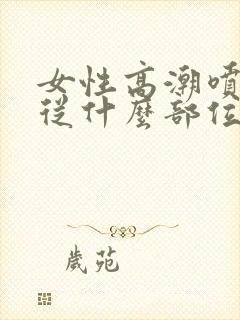 女性高潮噴
從什麼部位
歲苑